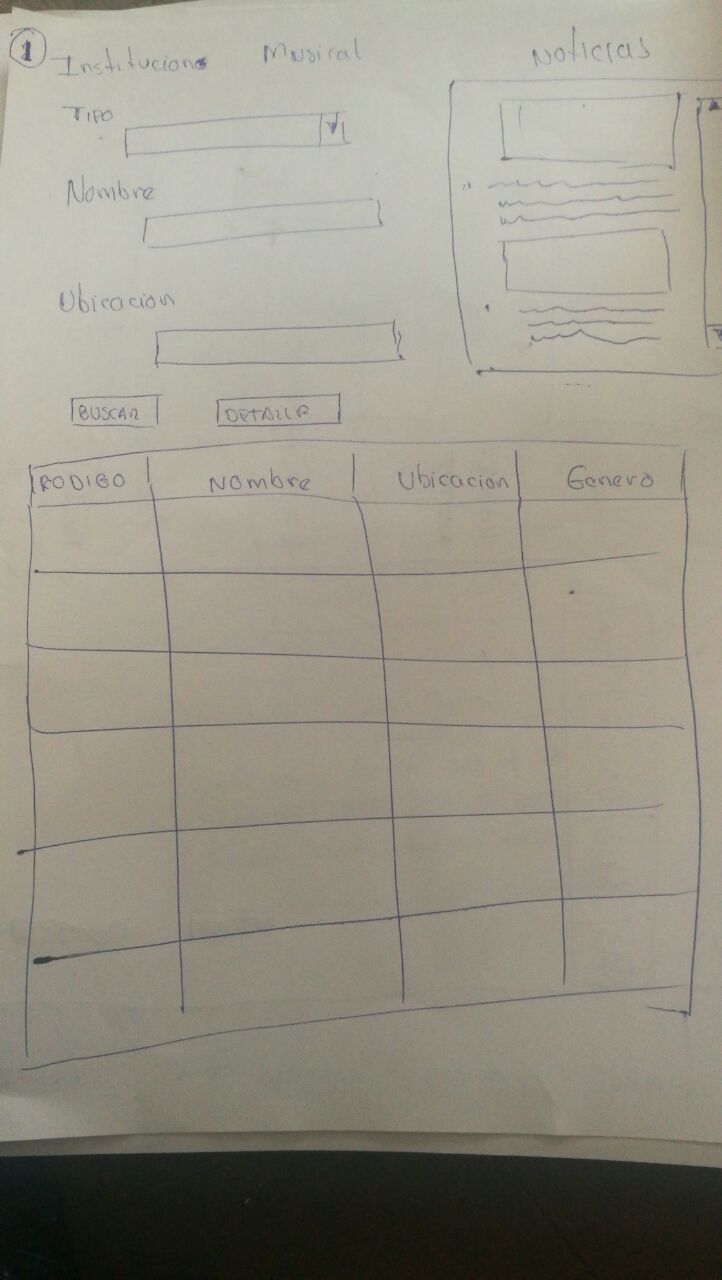 1
Institucion Musical
Noticias
TIPO
Nombre
Ubicacion
BUSCAR
DETALLE
CODIGO Nombre Ubicacion Genero